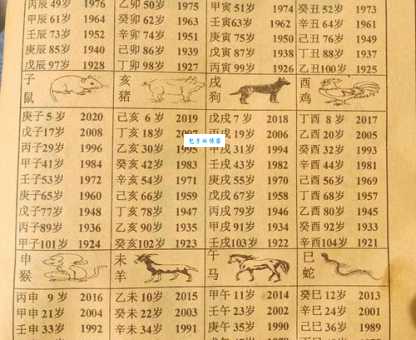 丙辰 49岁 1976 乙卯 50岁 1975 甲寅 51岁 1974 癸丑 52岁 1973
甲辰 61岁 1964 癸卯 62岁 1963 壬寅 63岁 1962 辛丑 64岁 1961
壬辰 73岁 1952 辛卯 74岁 1951 庚寅 75岁 1950 己丑 76岁 1949
庚辰 85岁 1940 己卯 86岁 1939 戊寅 87岁 1938 丁丑 88岁 1937
戊辰 97岁 1928 丁卯 98岁 1927 丙寅 99岁 1926 乙丑 100岁 1925
子鼠 亥猪 戌狗 酉鸡
庚子 5岁 2020 己亥 6岁 2019 戊戌 7岁 2018 丁酉 8岁 2017
戊子 17岁 2008 丁亥 18岁 丙戌 19岁 2006 乙酉 20岁 2005
丙子 29岁 1996 乙亥 30岁 甲戌 31岁 1994 癸酉 32岁 1993
甲子 41岁 1984 癸亥 42岁 1983 壬戌 43岁 1982 辛酉 44岁 1981
壬子 53岁 1972 辛亥 54岁 1971 庚戌 55岁 1970 己酉 56岁 1969
庚子 65岁 1960 己亥 66岁 1959 戊戌 67岁 1958 丁酉 68岁 1957
戊子 77岁 1948 丁亥 78岁 1947 丙戌 79岁 1946 乙酉 80岁 1945
丙子 89岁 1936 乙亥 90岁 1935 甲戌 91岁 1934 癸酉 92岁 1933
甲子 101岁 1924 癸亥 102岁 1923 壬戌 103岁 1922 辛酉 104岁 1921
申猴 未羊 午马 巳蛇
丙申 9岁 2016 乙未 10岁 2015 甲午 11岁 2014 癸巳 12岁 2013
甲申 21岁 2004 癸未 22岁 2003 壬午 23岁 2002 辛巳 24岁 2001
壬申 33岁 1992 辛未 34岁 1991 庚午 35岁 1990 己巳 36岁 1989